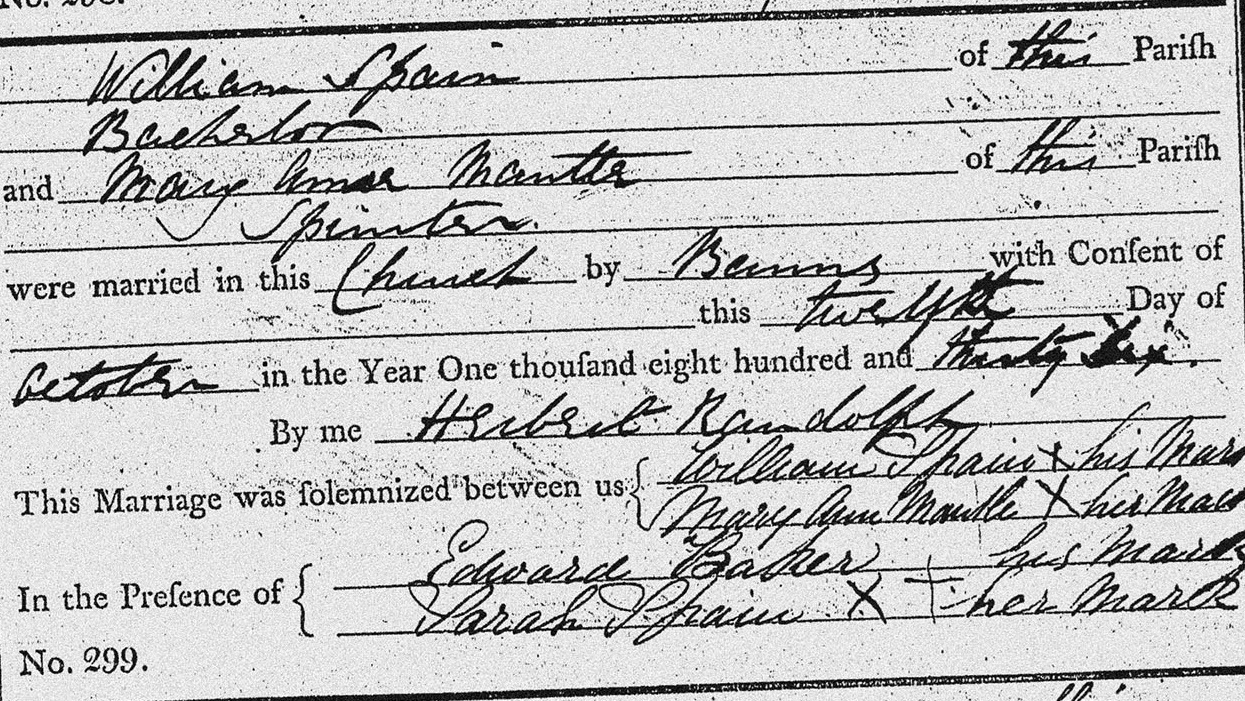 William Spain of this Pariſh
Bachelor
and Mary Anne Mantle of this Pariſh
Spinster.
were married in this Church by Banns with Conſent of
this twelfth Day of
October in the Year One thouſand eight hundred and thirty six.
By me Herbert Randolph
This Marriage was ſolemnized between us { William Spain X his Mark
Mary Ann Mantle X her Mark
In the Preſence of { Edward Baker his Mark
Sarah Spain X † her Mark
No. 299.